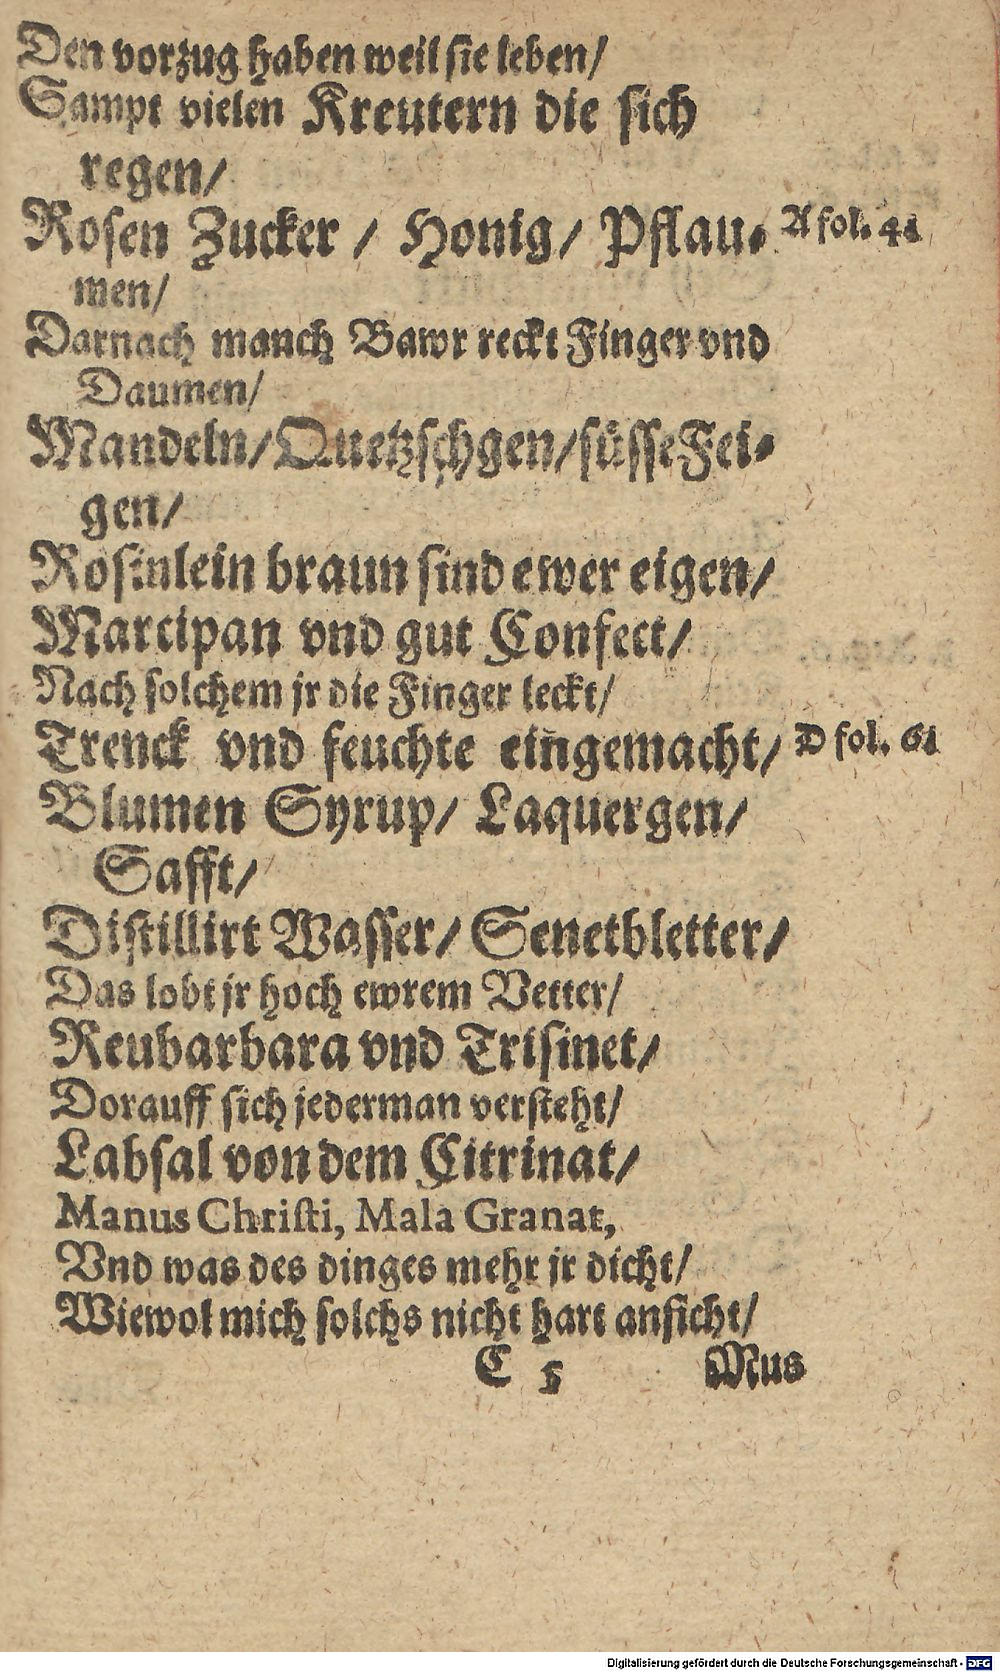 Den vorzug haben weil sie leben/
Sampt vielen Kreutern die sich
regen/
Rosen Zucker / Honig/ Pflau- A fol. 41
men/
Darnach manch Bawr reckt Finger vnd
Daumen/
Mandeln/Quetzschgen/süsse Fei-
gen/
Rosinlein braun sind ewer eigen/
Marcipan vnd gut Confect/
Nach solchem jr die Finger leckt/
Trenck vnd feuchte eingemacht/ D fol. 61
Blumen Syrup/ Laquergen/
Safft/
Distillirt Wasser/ Senetbletter/
Das lobt jr hoch ewrem Vetter/
Reubarbara vnd Trisinet/
Dorauff sich jederman versteht/
Labsal von dem Citrinat/
Manus Christi, Mala Granat,
Vnd was des dinges mehr jr dicht/
Wiewol mich solchs nicht hart anficht/
C 5 Mus
Digitalisierung gefördert durch die Deutsche Forschungsgemeinschaft - DFG